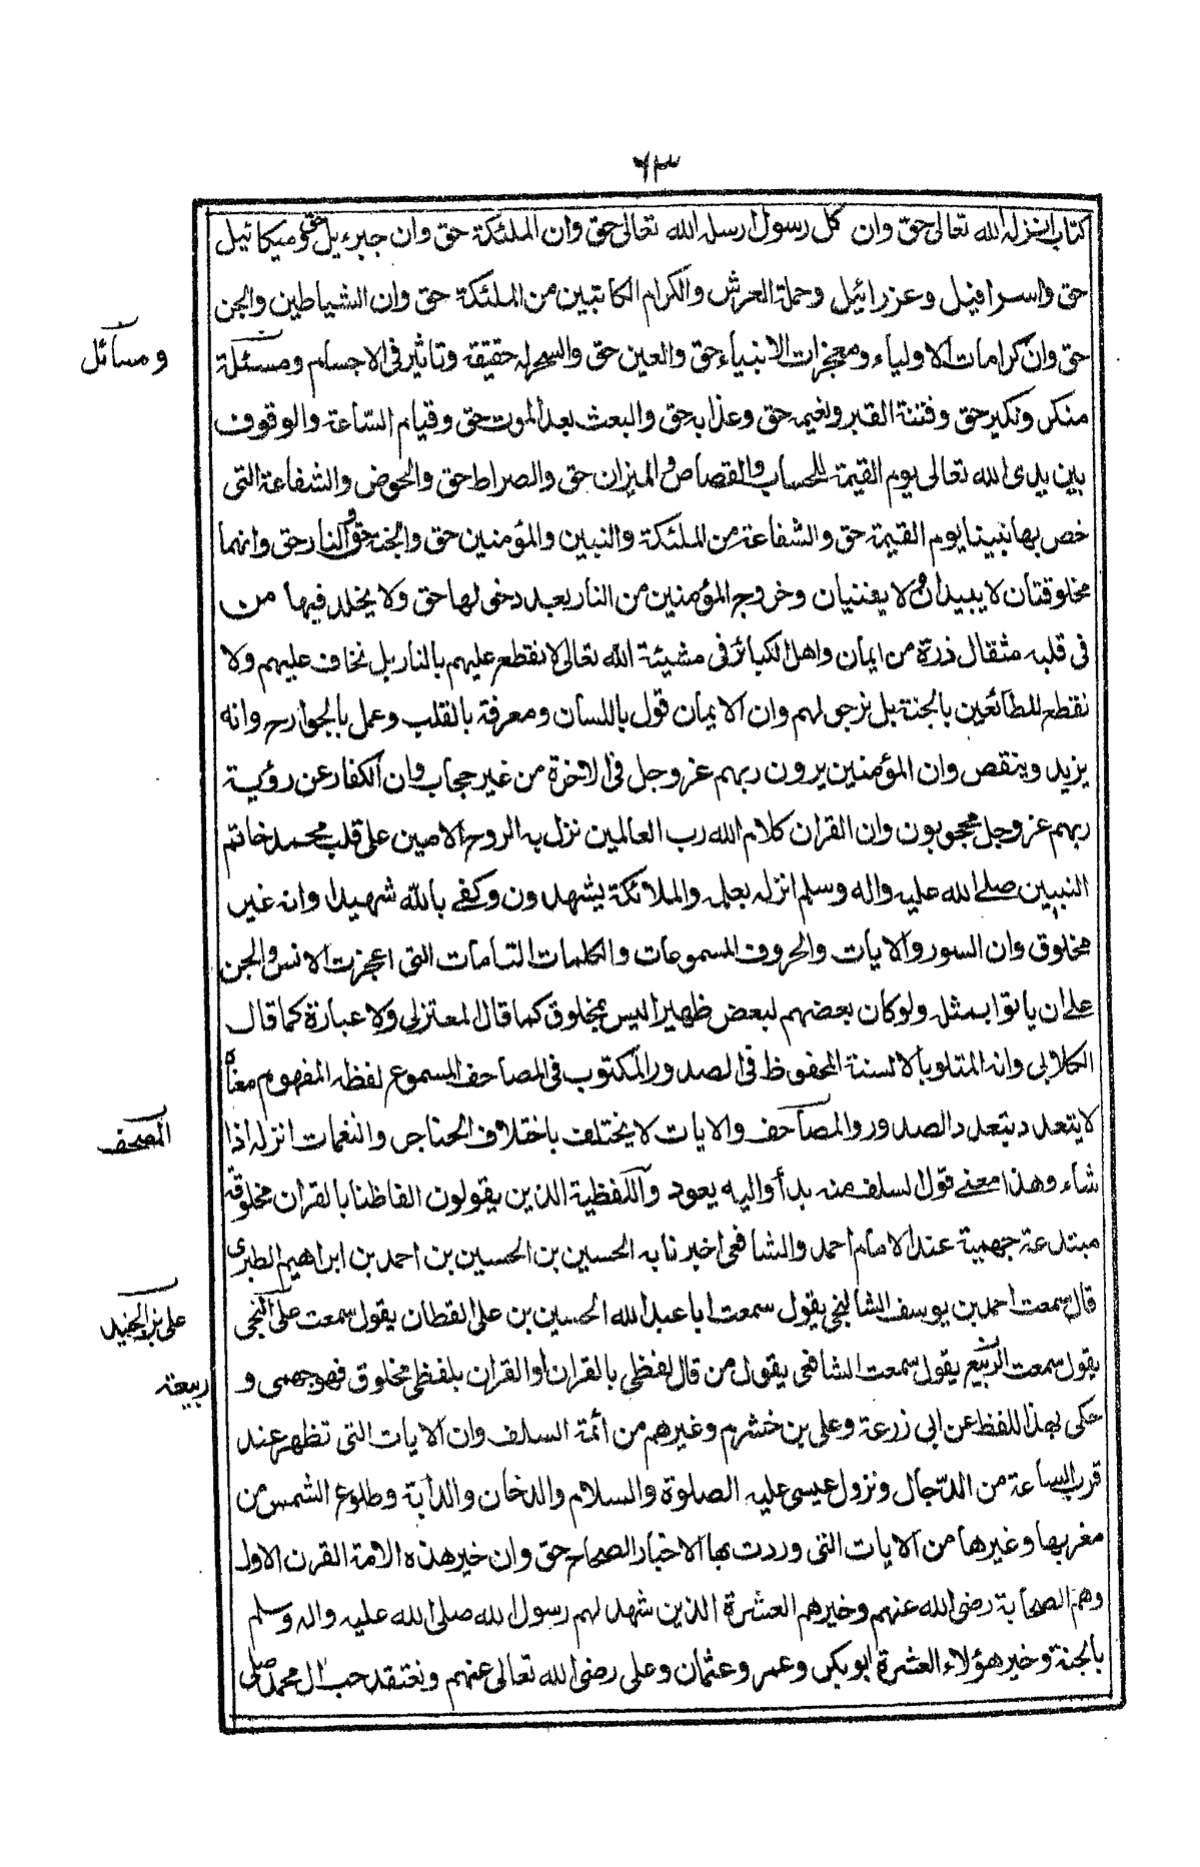 ٦٣
كتاب انزله الله تعالى حق وان كل رسول ارسله الله تعالى حق وان الملئكة حق وان جبرءيل حق وميكائيل
حق واسرافيل وعزرائيل وحملة العرش والكرام الكاتبين من الملئكة حق وان الشياطين والجن
حق وان كرامات الاولياء ومعجزات الانبياء حق والعين حق والسحر له حقيقة وتاثير فى الاجسام ومسئلة
ومسائل
منكر ونكير حق وفتنة القبر ونعيمه حق وعذابه حق والبعث بعد الموت حق وقيام الساعة والوقوف
بين يدى الله تعالى يوم القيمة للحساب والقصاص والميزان حق والصراط حق والحوض والشفاعة التى
خص بها نبينا يوم القيمة حق والشفاعة من الملئكة والنبين والمؤمنين حق والجنة حق والنار حق وانهما
مخلوقتان لا يبيدان ولا يفنيان وخروج المؤمنين من النار بعد دخولها حق ولا يخلد فيها من
فى قلبه مثقال ذرة من ايمان واهل الكبائر فى مشيئة الله تعالى لا نقطع عليهم بالنار بل نخاف عليهم ولا
نقطع للطائعين بالجنة بل نرجو لهم وان الايمان قول باللسان ومعرفة بالقلب وعمل بالجوارح وانه
يزيد وينقص وان المؤمنين يرون ربهم عز وجل فى الاخرة من غير حجاب وان الكفار عن رؤية
ربهم عز وجل محجوبون وان القران كلام الله رب العالمين نزل به الروح الامين على قلب محمد خاتم
النبيين صلے الله عليه واله وسلم انزله بعلمه والملائكة يشهدون وكفے بالله شهيدا وانه غير
مخلوق وان السور والايات والحروف المسموعات والكلمات التامات التى اعجزت الانس والجن
على ان ياتوا بمثله ولو كان بعضهم لبعض ظهيرا ليس بمخلوق كما قال المعتزلى ولا عبارة كما قال
الكلابى وانه المتلو بالالسنة المحفوظ فى الصدور المكتوب فى المصاحف المسموع لفظه المفهوم معناه
لا يتعدد بتعدد الصدور والمصاحف والايات لا يختلف باختلاف الحناجر والنغمات انزله اذا
المصحف
شاء وهذا معنے قول السلف منه بدأ واليه يعود واللفظية الذين يقولون الفاظنا بالقران مخلوقة
مبتدعة جهمية عند الامام احمد والشافعى اخبرنا به الحسين بن الحسين بن احمد بن ابراهيم الطبرى
قال سمعت احمد بن يوسف الشالنجى يقول سمعت ابا عبد الله الحسين بن على القطان يقول سمعت على
على بن الجنيد
يقول سمعت الربيع يقول سمعت الشافعى يقول من قال لفظى بالقران او القران بلفظى مخلوق فهو جهمى و
ربيعة
حكى بهذا اللفظ عن ابى زرعة وعلى بن خشرم وغيرهم من أئمة السلف وان الايات التى تظهر عند
قرب الساعة من الدّجال ونزول عيسى عليه الصلوة والسلام والدخان والدابة وطلوع الشمس من
مغربها وغيرها من الايات التى وردت بها الاخبار الصحاح حق وان خير هذه الامة القرن الاول
وهم الصحابة رضى الله عنهم وخيرهم العشرة الذين شهد لهم رسول الله صلى الله عليه واله وسلم
بالجنة وخير هؤلاء العشرة ابو بكر وعمر وعثمان وعلى رضى الله تعالى عنهم ونعتقد حب ال محمد صلى